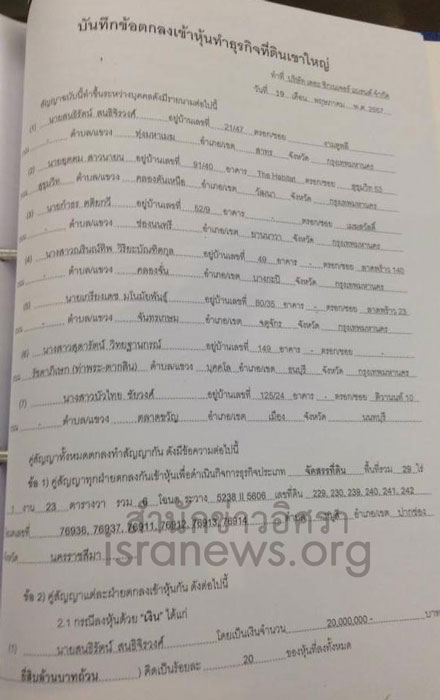 บันทึกข้อตกลงเข้าหุ้นทำธุรกิจที่ดินเขาใหญ่
ทำที่ บริษัท เดอะ ซิกเนเจอร์ แบรนด์ จำกัด
วันที่ 19 เดือน พฤษภาคม พ.ศ. 2557
สัญญาฉบับนี้ทำขึ้นระหว่างบุคคลดังมีรายนามต่อไปนี้
(1) นายสนธิรัตน์ สนธิจิรวงศ์ อยู่บ้านเลขที่ 21/47 ตรอก/ซอย งามดูพลี
ถนน - ตำบล/แขวง ทุ่งมหาเมฆ อำเภอ/เขต สาทร จังหวัด กรุงเทพมหานคร
(2) นายอุตตม สาวนายน อยู่บ้านเลขที่ 91/40 อาคาร The Habitat ตรอก/ซอย สุขุมวิท 53
ถนน สุขุมวิท ตำบล/แขวง คลองตันเหนือ อำเภอ/เขต วัฒนา จังหวัด กรุงเทพมหานคร
(3) นายกำธร คติยกวี อยู่บ้านเลขที่ 52/9 อาคาร - ตรอก/ซอย
ถนน - ตำบล/แขวง ช่องนนทรี อำเภอ/เขต ยานนาวา จังหวัด กรุงเทพมหานคร
(4) อยู่บ้านเลขที่ 49 อาคาร - ตรอก/ซอย ลาดพร้าว 140
ถนน - ตำบล/แขวง คลองจั่น อำเภอ/เขต บางกะปิ จังหวัด กรุงเทพมหานคร
(5) นายเกรียงเดช มโนมัยพันธุ์ อยู่บ้านเลขที่ 80/35 อาคาร - ตรอก/ซอย ลาดพร้าว 23
ถนน - ตำบล/แขวง จันทรเกษม อำเภอ/เขต จตุจักร จังหวัด กรุงเทพมหานคร
(6) นางสาวสุดารัตน์ วิทยฐานกรณ์ อยู่บ้านเลขที่ 149 อาคาร - ตรอก/ซอย -
ถนน รัชดาภิเษก (ท่าพระ-ตากสิน) ตำบล/แขวง บุคคโล อำเภอ/เขต ธนบุรี จังหวัด กรุงเทพมหานคร
(7) นางสาวบัวไหล ชัยวงศ์ อยู่บ้านเลขที่ 125/24 อาคาร - ตรอก/ซอย ติวานนท์ 10
ถนน - ตำบล/แขวง ตลาดขวัญ อำเภอ/เขต เมือง จังหวัด นนทบุรี
คู่สัญญาทั้งหมดตกลงทำสัญญากัน ดังมีข้อความต่อไปนี้
ข้อ 1) คู่สัญญาทุกฝ่ายตกลงกันเข้าหุ้นเพื่อดำเนินกิจการธุรกิจประเภท จัดสรรที่ดิน พื้นที่รวม 29 ไร่
1 งาน 23 ตารางวา รวม 6 โฉนด ระวาง 5238 II 5606 เลขที่ดิน 229, 230, 239, 240, 241, 242
โฉนดเลขที่ 76936, 76937, 76911, 76912, 76913, 76914 ตำบล อำเภอ/เขต ปากช่อง
จังหวัด นครราชสีมา
สำนักข่าวอิศรา
isranews.org
ข้อ 2) คู่สัญญาแต่ละฝ่ายตกลงเข้าหุ้นกัน ดังต่อไปนี้
2.1 กรณีลงหุ้นด้วย "เงิน" ได้แก่
(1) นายสนธิรัตน์ สนธิจิรวงศ์ โดยเป็นเงินจำนวน 20,000,000.- บาท
(ยี่สิบล้านบาทถ้วน) คิดเป็นร้อยละ 20 ของหุ้นที่ลงทั้งหมด